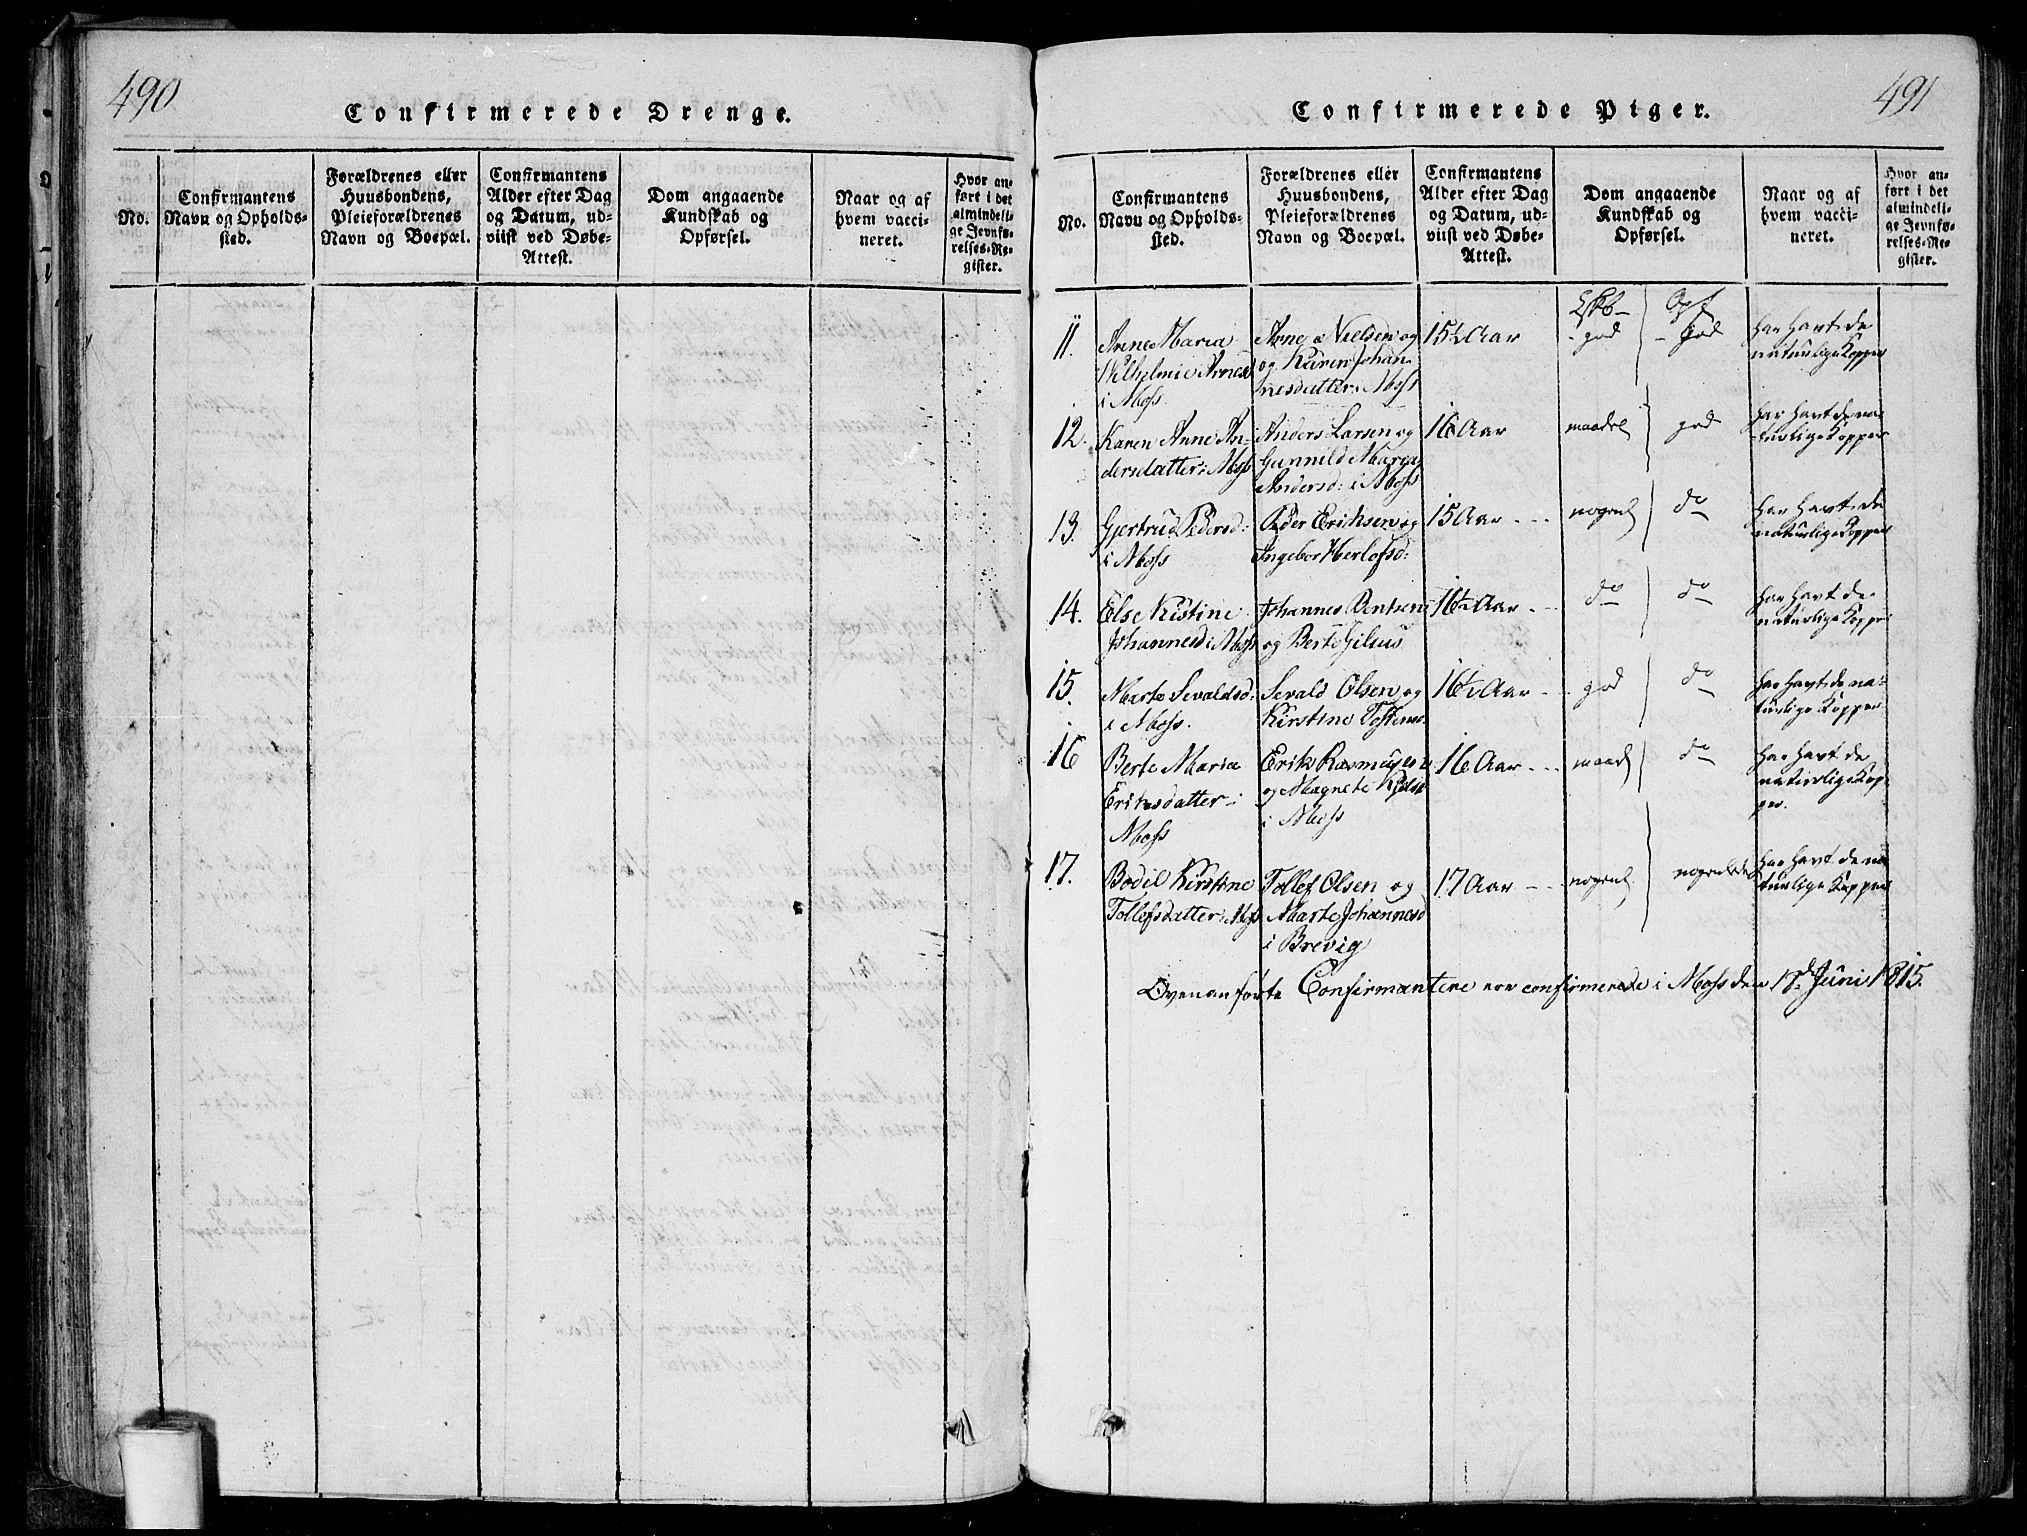 490
Confirmerede Drenge.
No.
Confirmantens
Navn og Opholds-
sted.
Forældrenes eller
Huusbondens,
Pleieforældrenes
Navn og Boepæl.
Confirmantens
Alder efter Dag
og Datum, ud-
viist ved Døbe-
Attest.
Dom angaaende
Kundskab og
Opførsel.
Naar og af
hvem vacci-
neret.
Hvor an-
ført i det
almindeli-
ge Jevnfø-
relses-Re-
gister.
491
Confirmerede Piger.
No.
Confirmantens
Navn og Opholds-
sted.
Forældrenes eller
Huusbondens,
Pleieforældrenes
Navn og Boepæl.
Confirmantens
Alder efter Dag
og Datum, ud-
viist ved Døbe-
Attest.
Dom angaaende
Kundskab og
Opførsel.
Naar og af
hvem vacci-
neret.
Hvor an-
ført i det
almindeli-
ge Jevnfø-
relses-Re-
gister.
11.
Anne Maria
Vilhelmie Arnesd
i Moss.
Arne Nielsen og
og Karen Johan-
nesdatter i Moss
15½ Aar
god
Opf
god
har havt de
naturlige Kopper
12.
Karen Anne An-
dersdatter i Moss
Anders Larsen og
Gunnild Maria
Andersd: i Moss
16 Aar
maadel
god
har havt de na-
turlige Kopper
13.
Gjertrud Pedersd:
i Moss
Peder Eriksen og
Ingebor Herlofsd:
15 Aar
nogenl
do
har havt de
naturlige Kopper
14.
Else Kistine
Johannesd i Moss
Johannes Bentsen
og Berte
16½ Aar
do
do
har havt de
naturlige Kopper
15.
Marte Sevaldsd:
i Moss.
Sevald Olsen og
Kirstine
16½ Aar
god
do
har havt de na-
turlige Kopper
16
Berte Maria
Eriksdatter i
Moss
Erik Rasmusen
og Magnete
i Moss
16 Aar
maadl
do
har havt de
naturlige Kop-
per.
17.
Bodil Kirstine
Tollefsdatter i Moss
Tollef Olsen og
Marte Johannesd
i Brevig
17 Aar
nogenl
har havt de na
turlige Kopper
Ovenanførte Confirmantere ere confirmerede i Moss den Juni 1815.